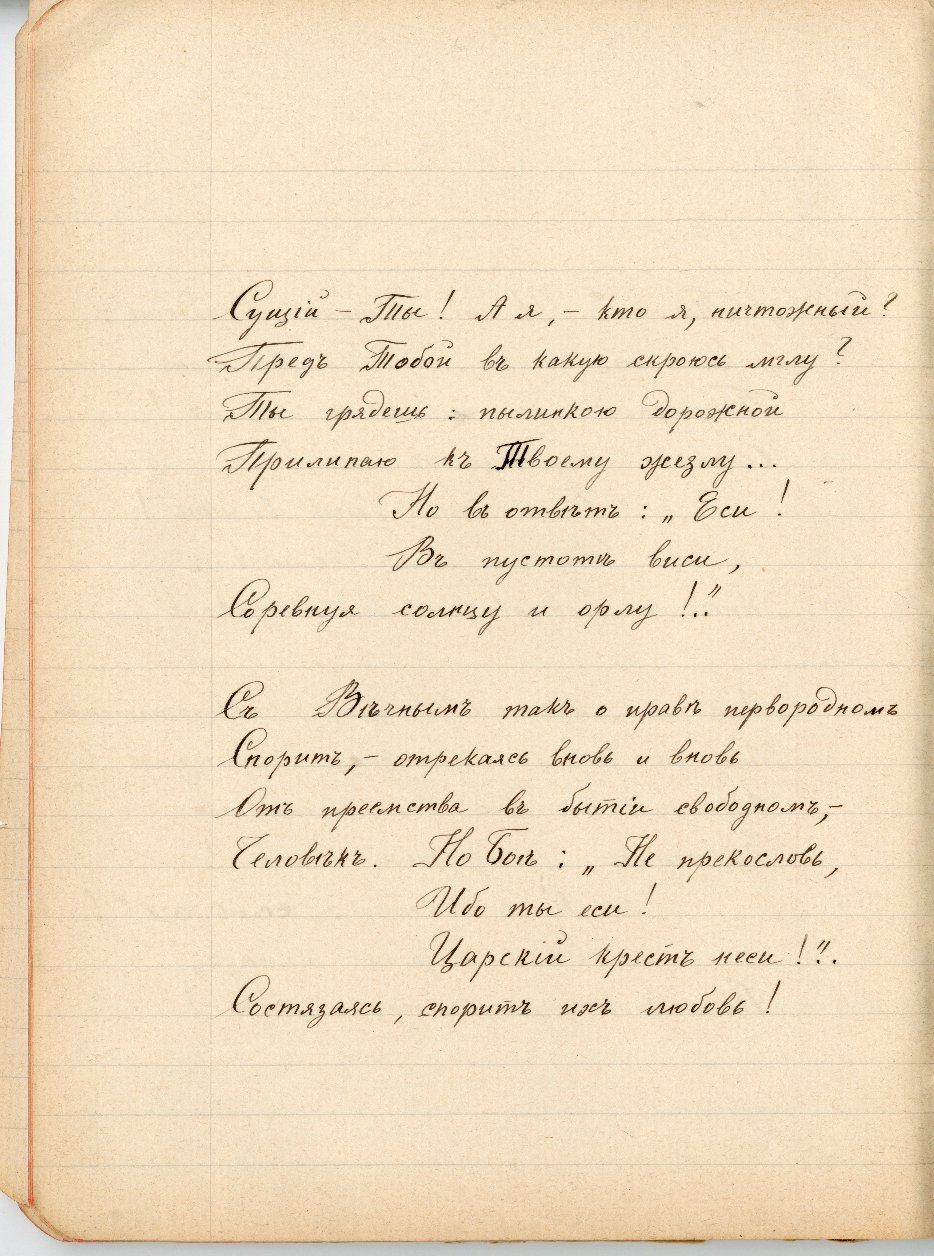 Сущій – Ты! А я, – кто я, ничтожный?
Предъ Тобой въ какую скроюсь мглу?
Ты грядешь: пылинкою дорожной
Прилипаю къ Твоему жезлу...
Но въ отвѣтъ: „Еси!
Въ пустотѣ виси,
Соревнуя солнцу и орлу!.."
Съ Вѣчнымъ такъ о правѣ первородномъ
Споритъ, – отрекаясь вновь и вновь
Отъ преемства въ бытіи свободномъ, –
Человѣкъ. Но Богъ: „Не прекословь,
Ибо ты еси!
Царскій крестъ неси!"..
Состязаясь, споритъ ихъ любовь!